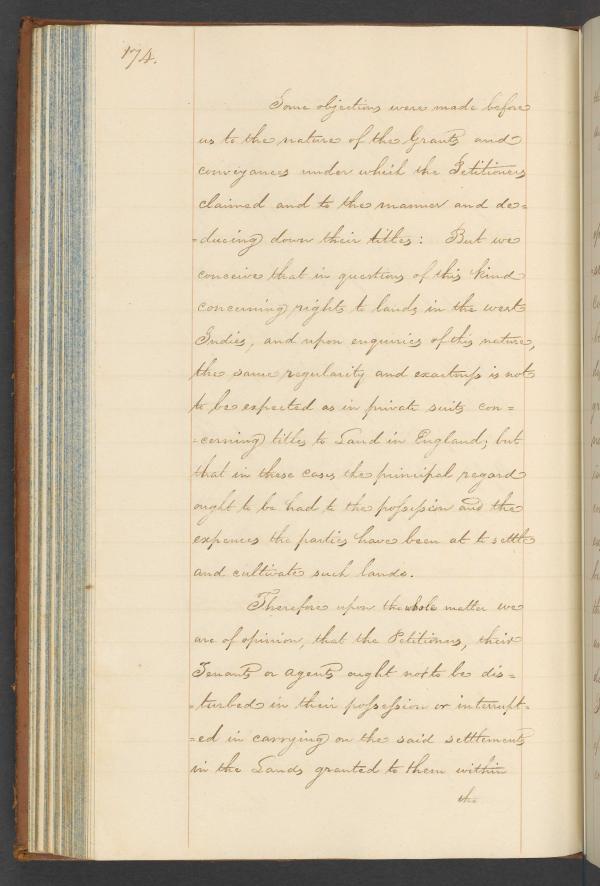 174.
Some objections were made before
us to the nature of the Grants and
conveyances under which the Petitioners
claimed and to the manner and de=
=ducing down their titles: But we
conceive that in questions of this kind
concerning rights to lands in the west
Indies, and upon enquiries of this nature,
the same regularity and exactness is not
to be expected as in private suits con=
=cerning titles to Land in England; but
that in these cases the principal regard
ought to be had to the possession and the
expences the parties have been at to settle
and cultivate such lands.
Therefore upon the whole matter we
are of opinion, that the Petitioners, their
Tenants or agents ought not to be dis=
=turbed in their possession or interrupt=
=ed in carrying on the said settlements
in the Lands granted to them within
the